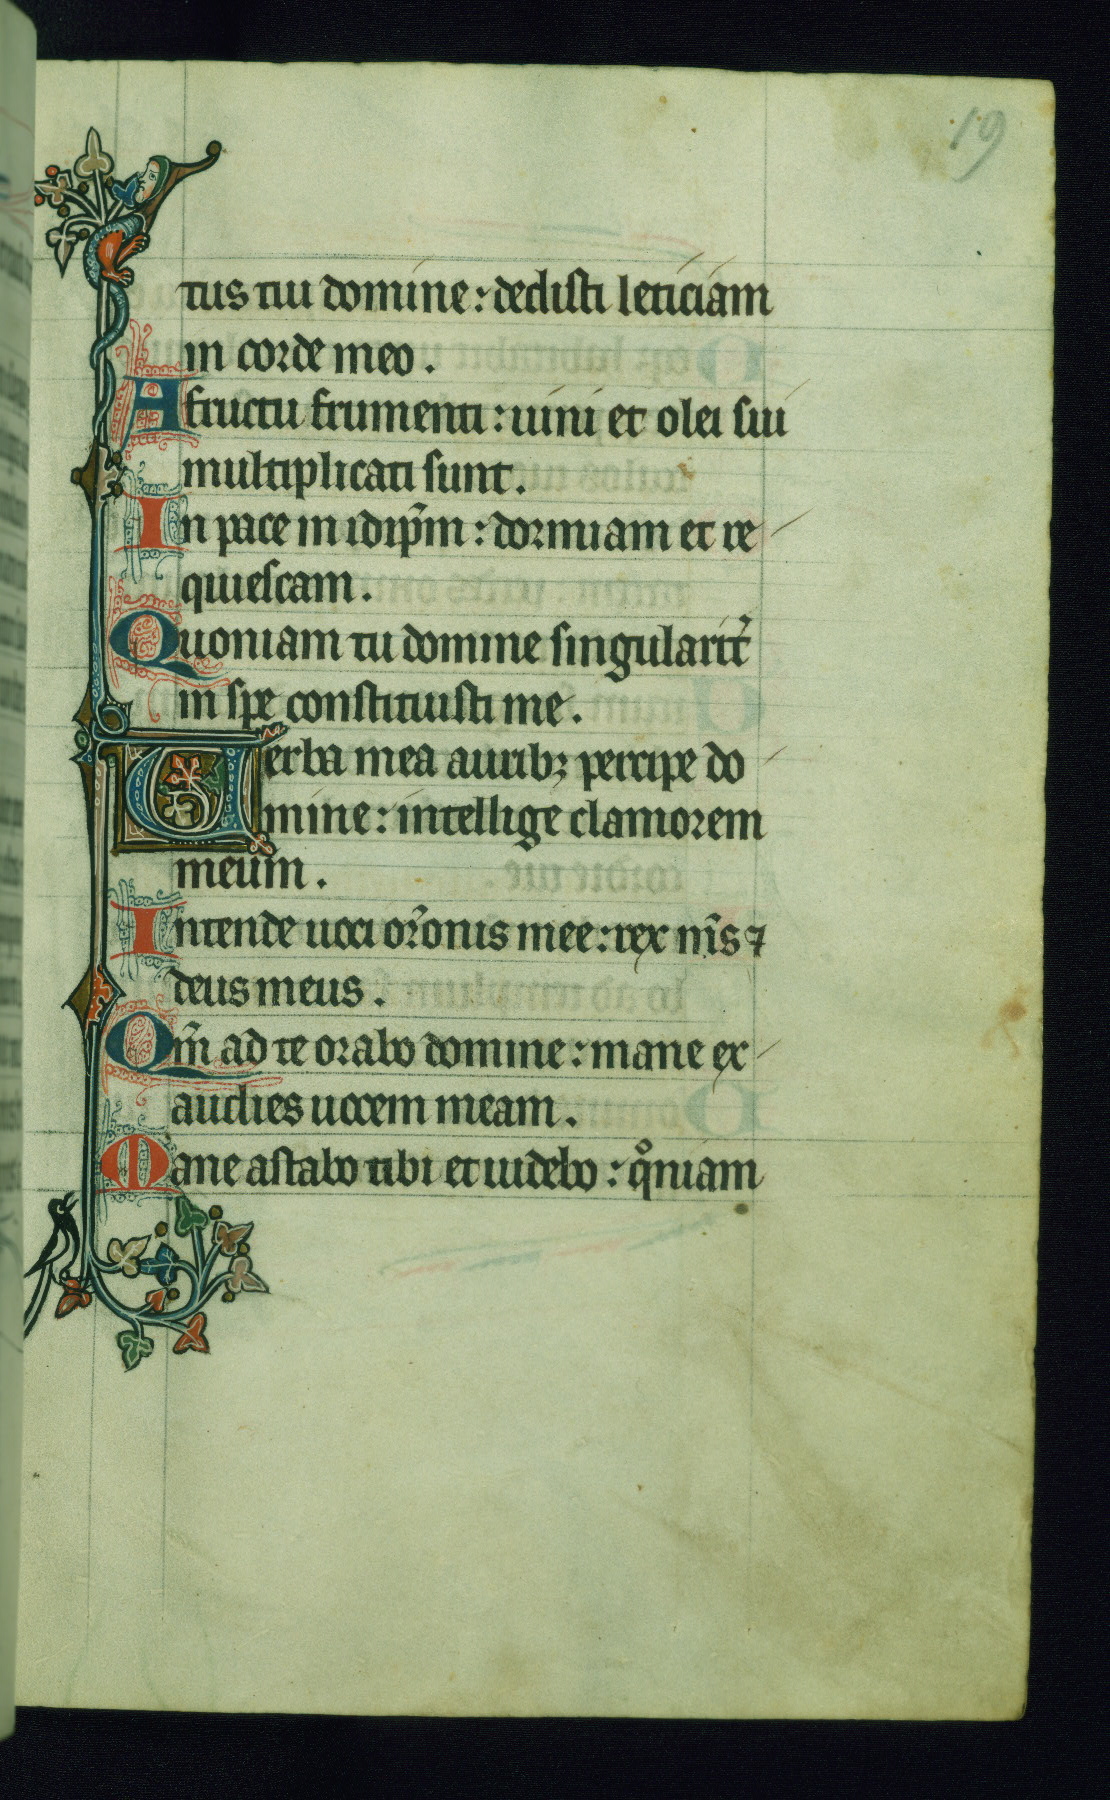 19
tus tui domine : dedisti leticiam
in corde meo .
A fructu frumenti : uini et olei sui
multiplicati sunt .
In pace in idip̄m : dormiam et re
quiescam .
Quoniam tu domine singularit̄
in spe constituisti me .
Uerba mea auribꝫ percipe do
mine : intellige clamorem
meum .
Intende uoci or̄onis mee : rex m̄s ⁊
deus meus .
Qm̄ ad te orabo domine : mane ex
audies uocem meam .
Mane astabo tibi et uidebo : qͦniam